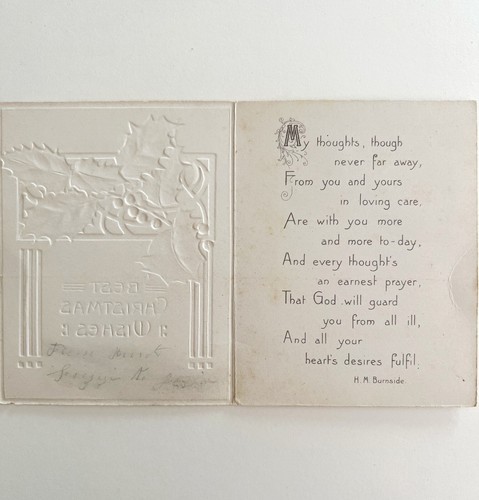 BEST
CHRISTMAS
WISHES
My thoughts, though
never far away,
From you and yours
in loving care,
Are with you more
and more to-day,
And every thought's
an earnest prayer,
That God will guard
you from all ill,
And all your
heart's desires fulfil.
H. M. Burnside.